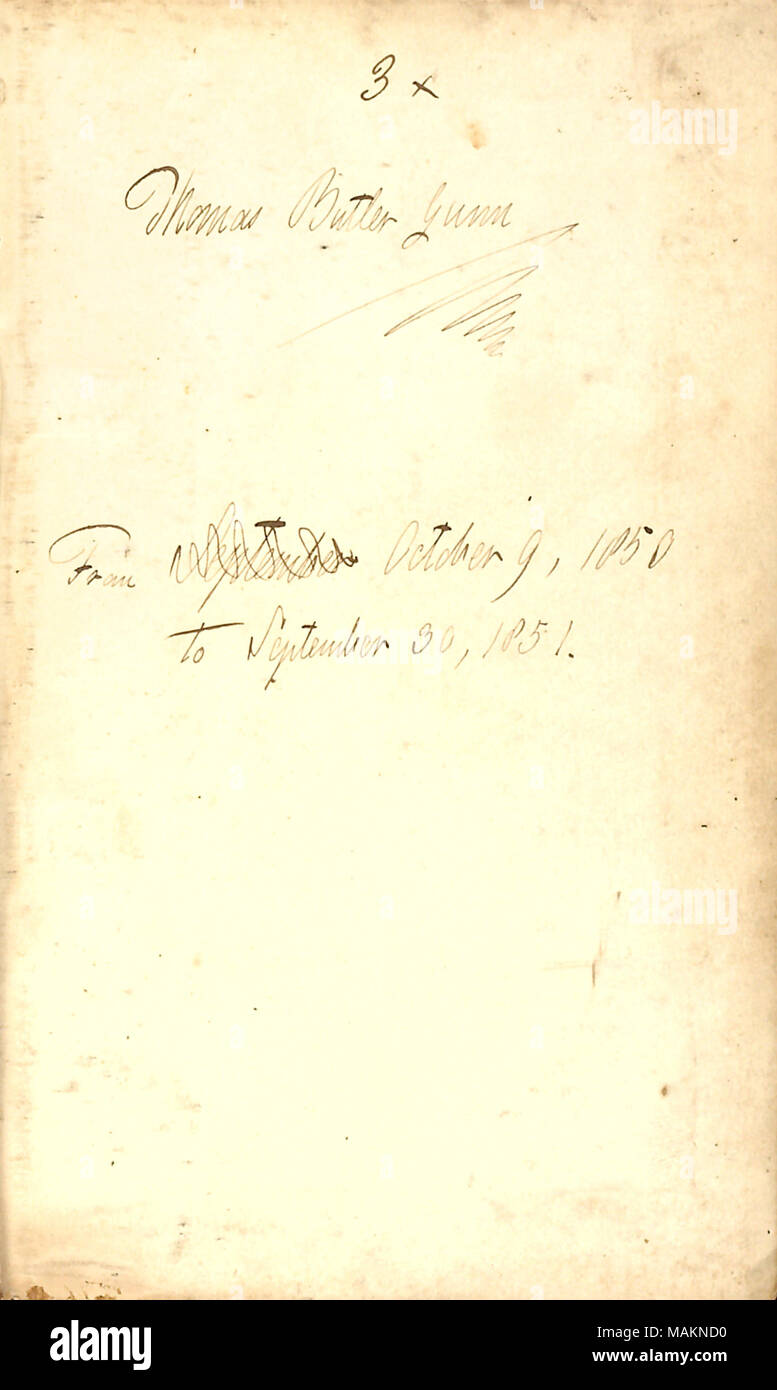 3 x
Thomas Butler Gunn
From September October 9, 1850
to September 30, 1851.
alamy
alamy
alamy
Image ID: MAKND0
www.alamy.com